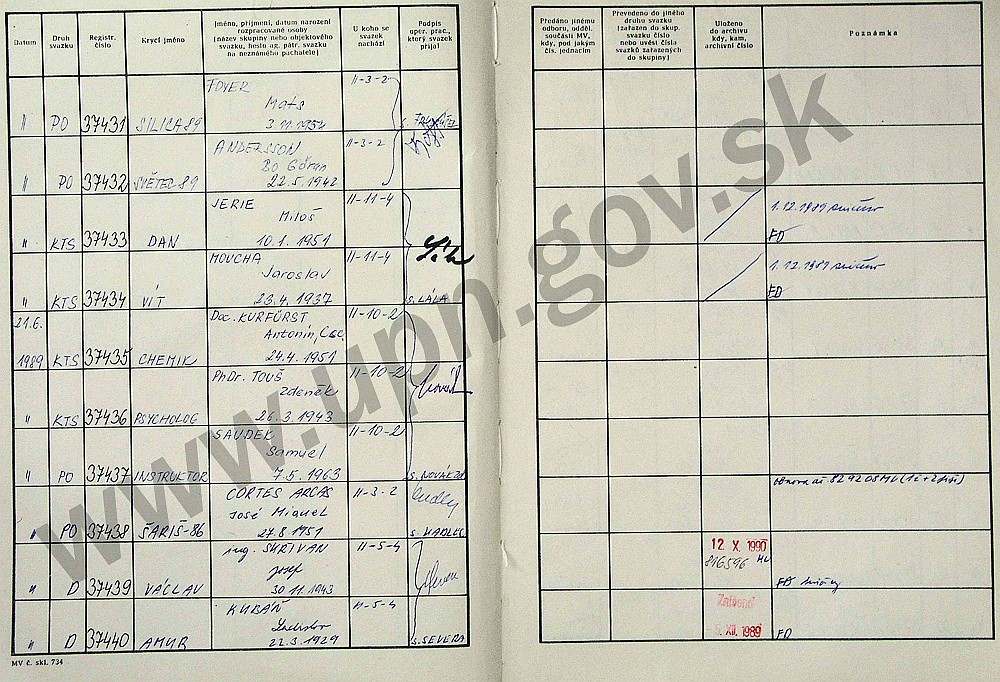 Datum
Druh
svazku
Registr.
číslo
Krycí jméno
Jméno, příjmení, datum narození
rozpracované osoby
(název skupiny nebo objektového
svazku, heslo ag. pátr. svazku
na neznámého pachatele)
U koho se
svazek
nachází
Podpis
oper. prac.,
který svazek
přijal
Předáno jinému
odboru, odděl.
součásti MV,
kdy, pod jakým
čís. jednacím
Převedeno do jiného
druhu svazku
(zařazen do skup.
svazku číslo
nebo uvést čísla
svazků zařazených
do skupiny)
Uloženo
do archivu
kdy, kam,
archivní číslo
Poznámka
FOYER II-3-2
Mats
" PO 37431 SILICA 89 3.11.1954
ANDERSSON II-3-2
Bo Göran
" PO 37432 SVĚTEC 89 22.5.1942
JERIE II-11-4
Miloš 1.12.1989
" KTS 37433 DAN 10.1.1951 FD
MOUCHA II-11-4
Jaroslav 1.12.1989
" KTS 37434 VÍT 23.4.1937 s. LÁLA FD
21.6. Doc. KURFÜRST II-10-2
Antonín, CSc.
1989 KTS 37435 CHEMIK 24.4.1951
PhDr. TOUŠ II-10-2
Zdeněk
" KTS 37436 PSYCHOLOG 26.3.1943
SAUDEK II-10-2
Samuel
" PO 37437 INSTRUKTOR 7.5.1963 s. NOVÁK
CORTES ARCAS II-3-2
José Miguel
" PO 37438 ŠARIŠ-86 27.8.1951 s. KADLEC
ing. SKŘIVAN II-5-4 12 X. 1990
Josef 816596 MV
" D 37439 VÁCLAV 30.11.1943 FD
KUBÁŇ II-5-4 Zničeno
Ladislav
" D 37440 AMUR 22.3.1929 s. SEVERA 5. XII. 1989 FD
MV č. skl. 734
www.upn.gov.sk